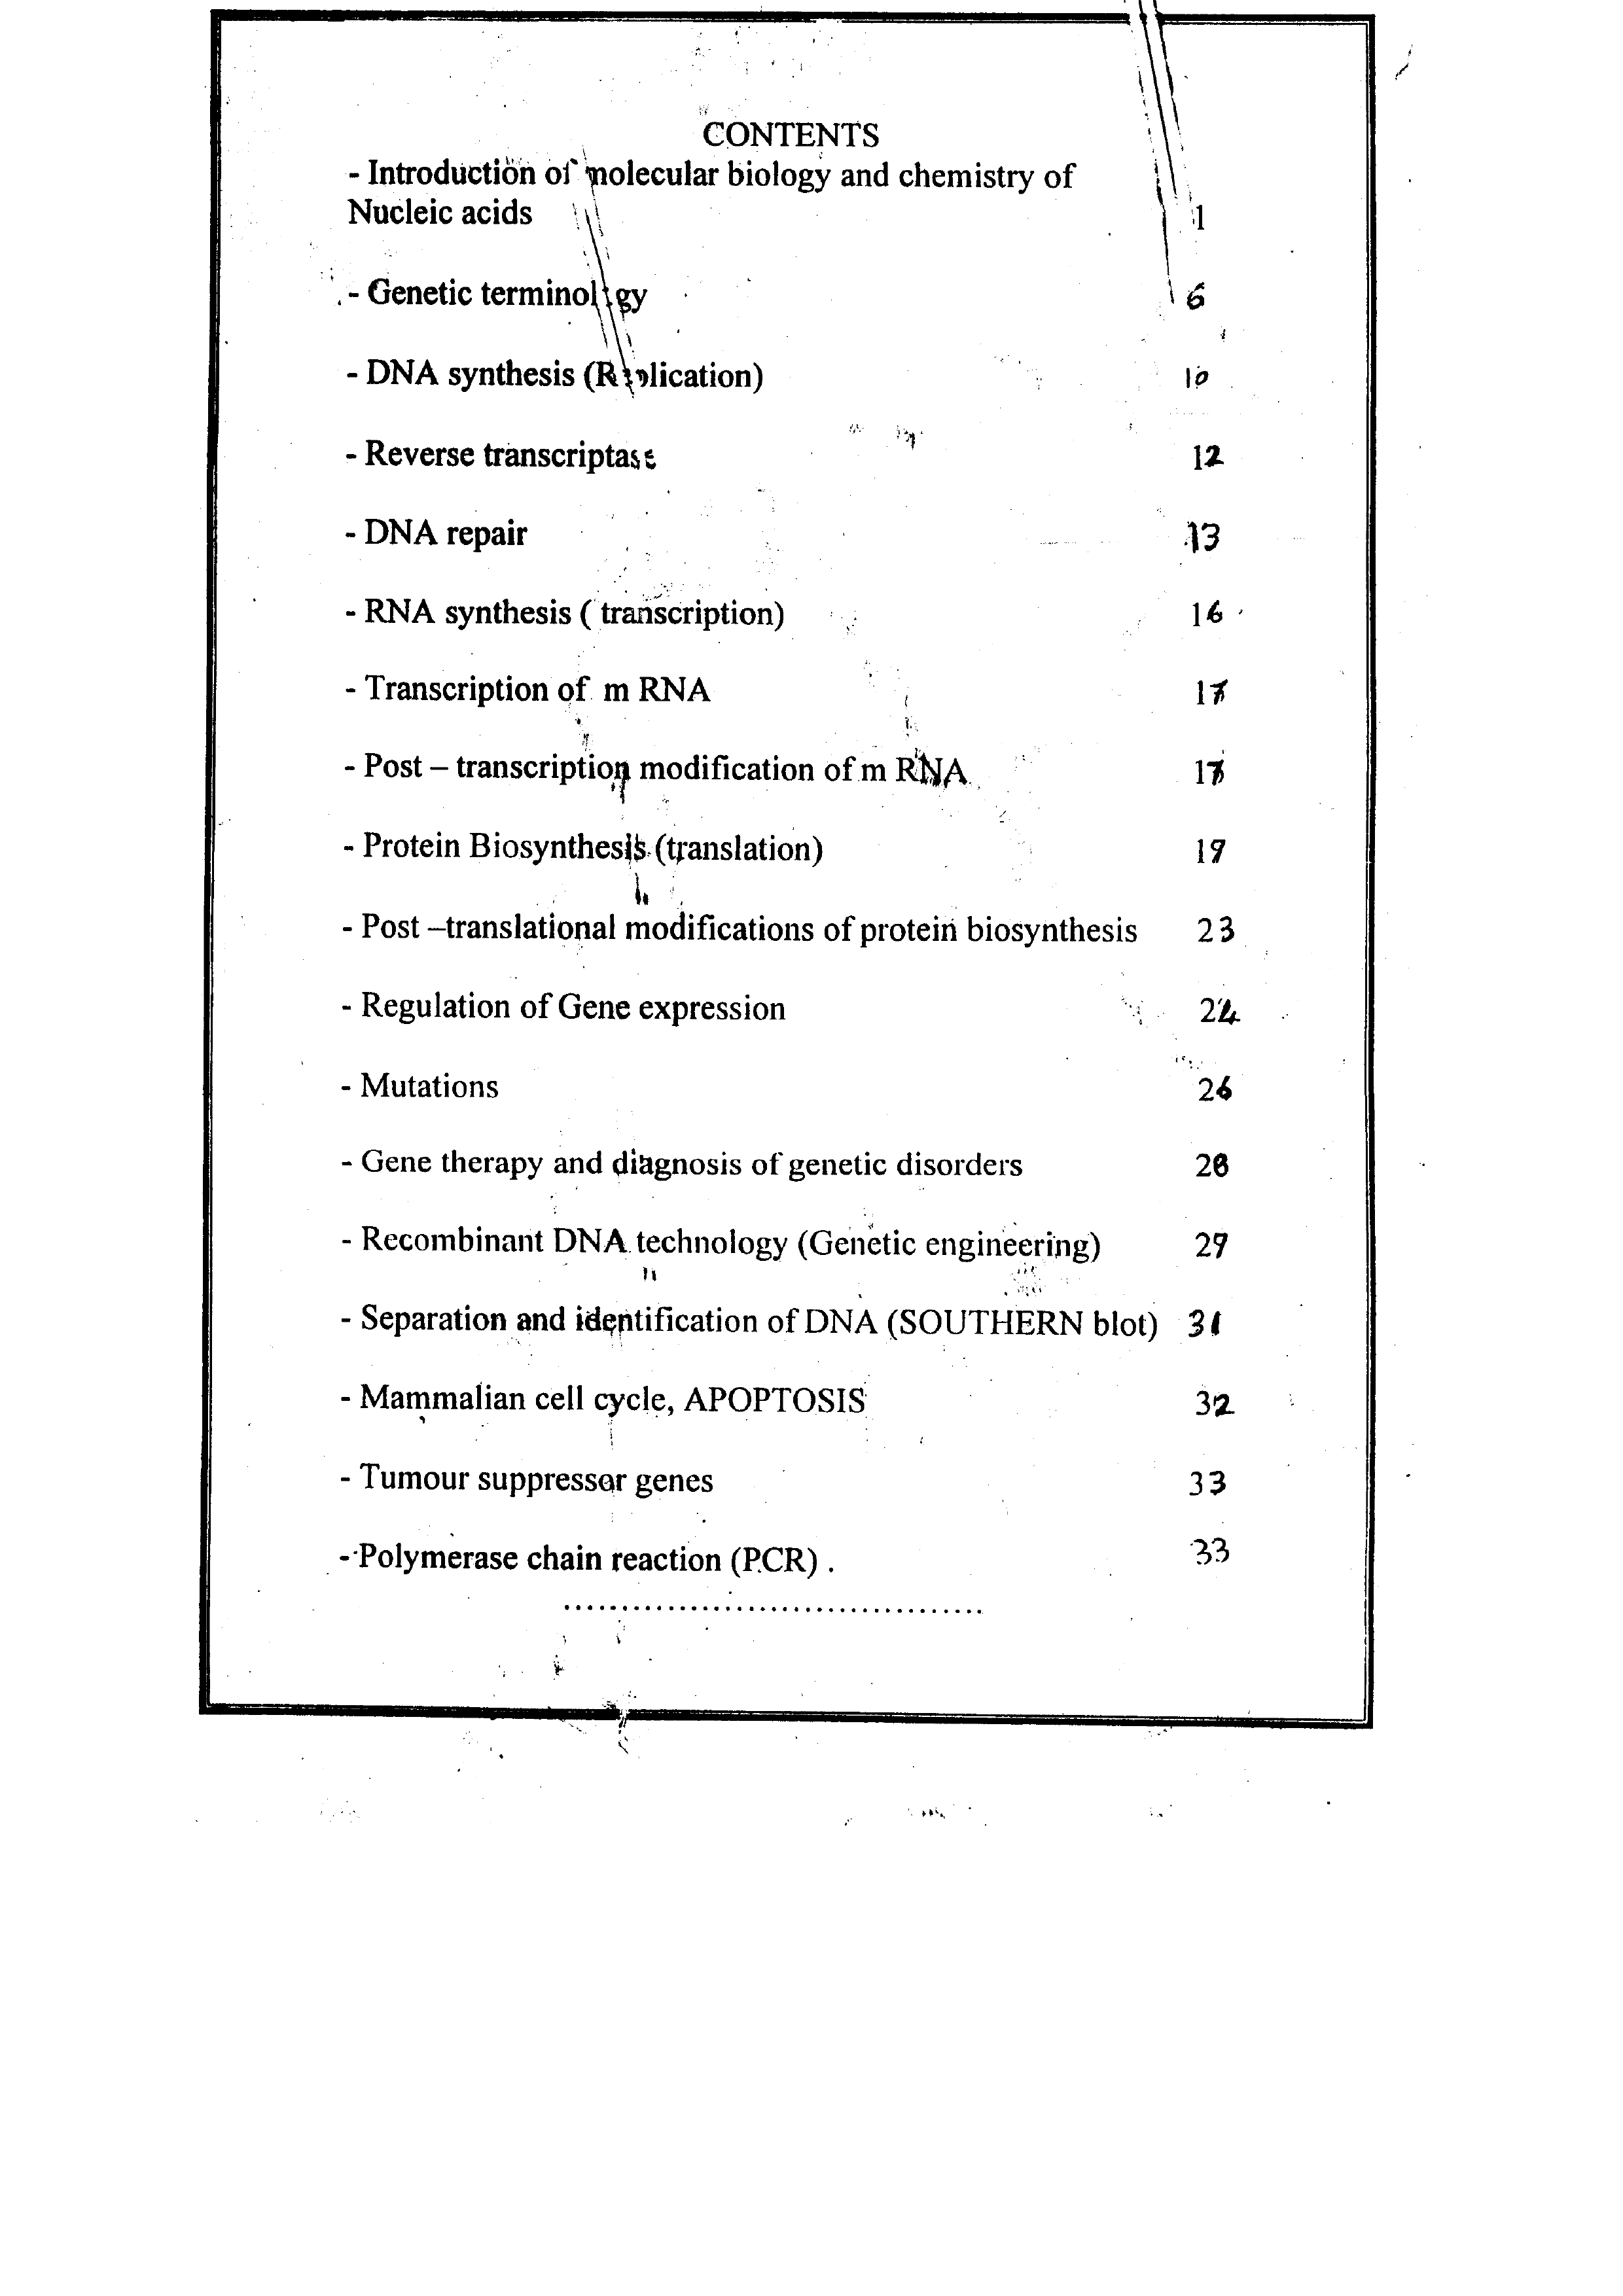 CONTENTS
- Introduction of molecular biology and chemistry of
Nucleic acids 1
- Genetic terminology 6
- DNA synthesis (Replication) 10
- Reverse transcriptase 12
- DNA repair 13
- RNA synthesis ( transcription) 16
- Transcription of m RNA 17
- Post – transcription modification of m RNA
- Protein Biosynthesis (translation) 19
- Post –translational modifications of protein biosynthesis 23
- Regulation of Gene expression 24
- Mutations 26
- Gene therapy and diagnosis of genetic disorders 28
- Recombinant DNA technology (Genetic engineering) 29
- Separation and identification of DNA (SOUTHERN blot) 31
- Mammalian cell cycle, APOPTOSIS 32
- Tumour suppressor genes 33
- Polymerase chain reaction (PCR) . 33
.....................................